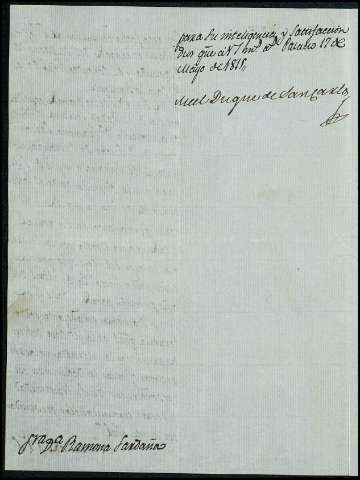 para su inteligencia y satisfacción
Dios gue á V. ms. as. Palacio 17 de
Mayo de 1815.
El Duque de San Carlos
Sra. Da. Ramona